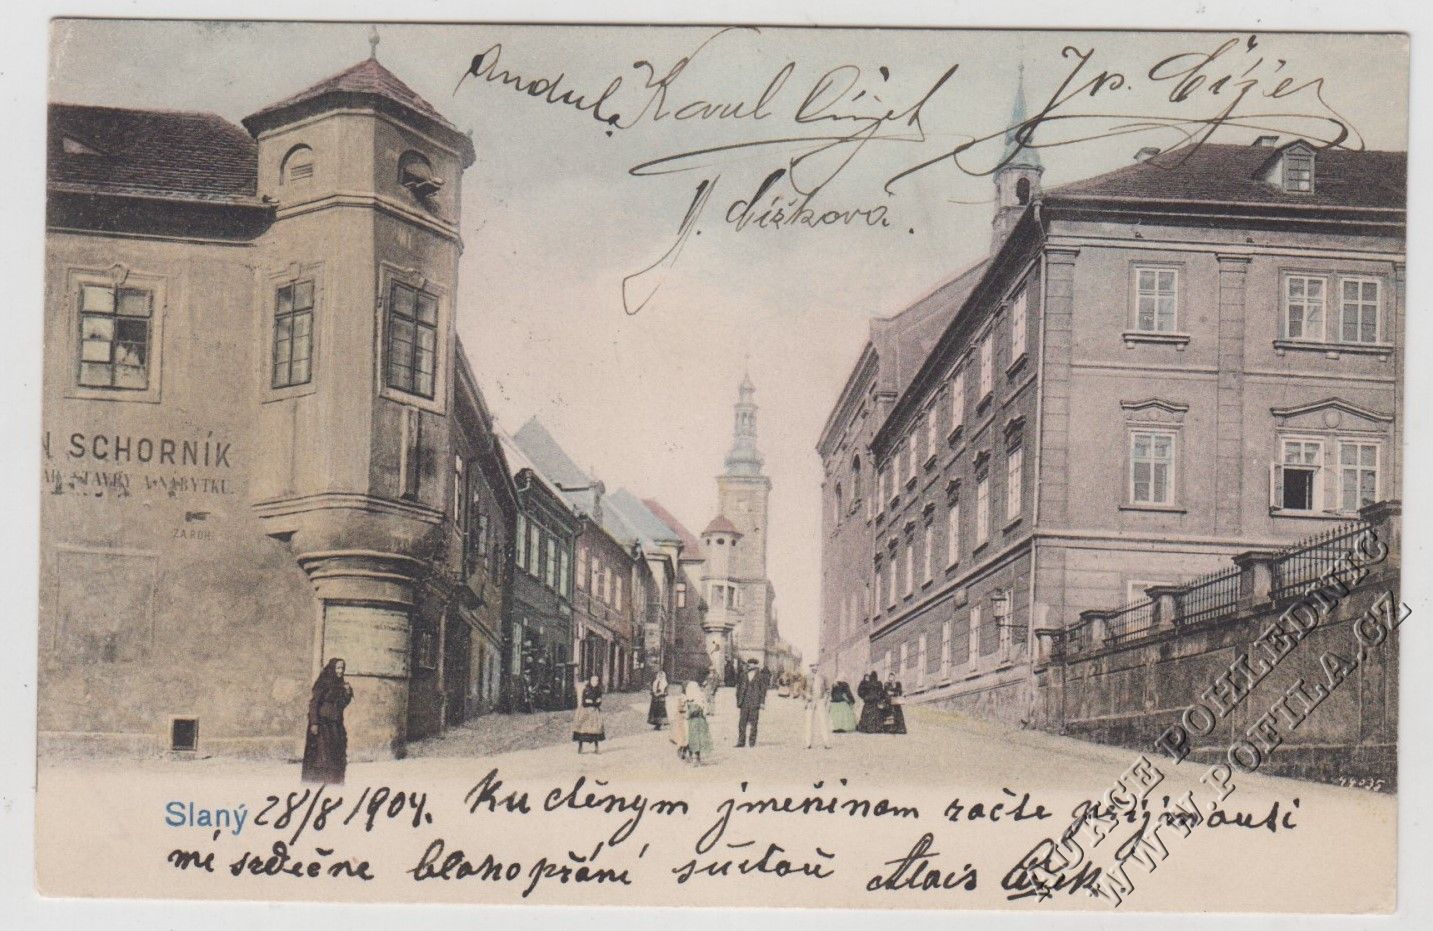 Andula Karel Čížek Jos. Čížek
M. Čížková.
N SCHORNÍK
STAVBY A NÁBYTKU.
ZA ROH
Slaný 28/8 1904. Ku ctěným jmeninam račte přijmouti
mé srdečne blahopřání
Alois Čížek
AUKCE POHLEDNIC
WWW.POFILA.CZ